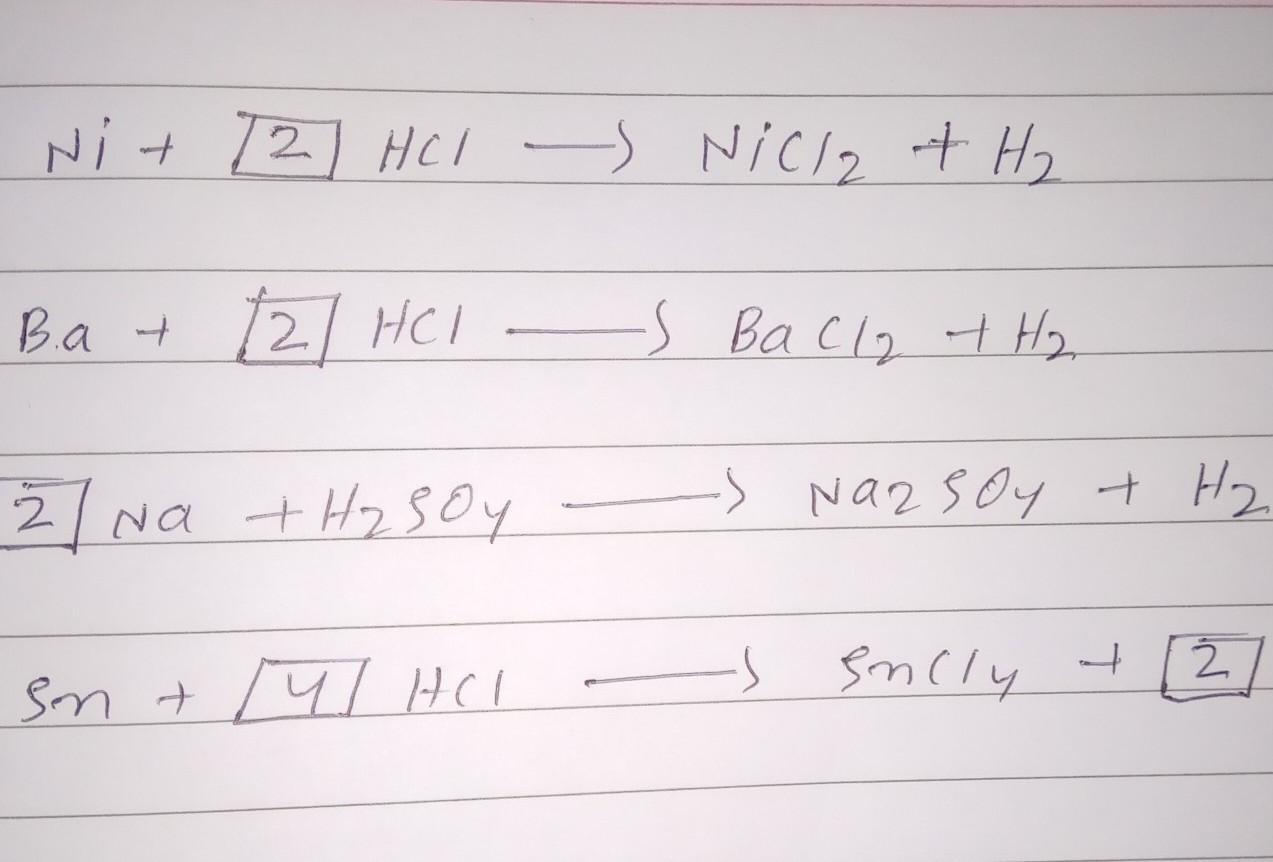 Ni + 2 HCl → NiCl2 + H2
Ba + 2 HCl → BaCl2 + H2
2 Na + H2SO4 → Na2SO4 + H2
Sn + 4 HCl → SnCl4 + 2